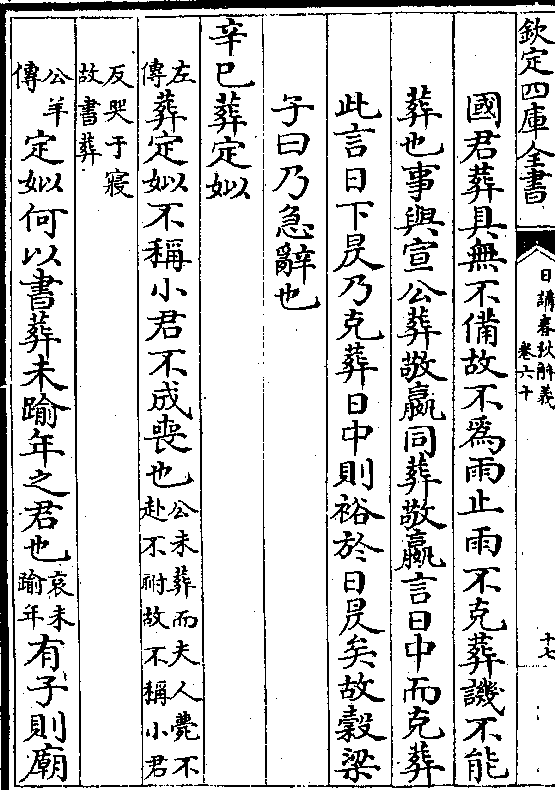 欽定四庫全書
日講春秋解義
卷六十
十七
國君葬具無不備故不為雨止雨不克葬譏不能
葬也事與宣公葬敬嬴同葬敬嬴言日中而克葬
此言日下昃乃克葬日中則裕於日昃矣故穀梁
子曰乃急辭也
辛巳葬定姒
左傳葬定姒不稱小君不成喪也公未葬而夫人薨不赴不祔故不稱小君
反哭于寢故書葬
公羊傳定姒何以書葬未踰年之君也哀未踰年有子則廟